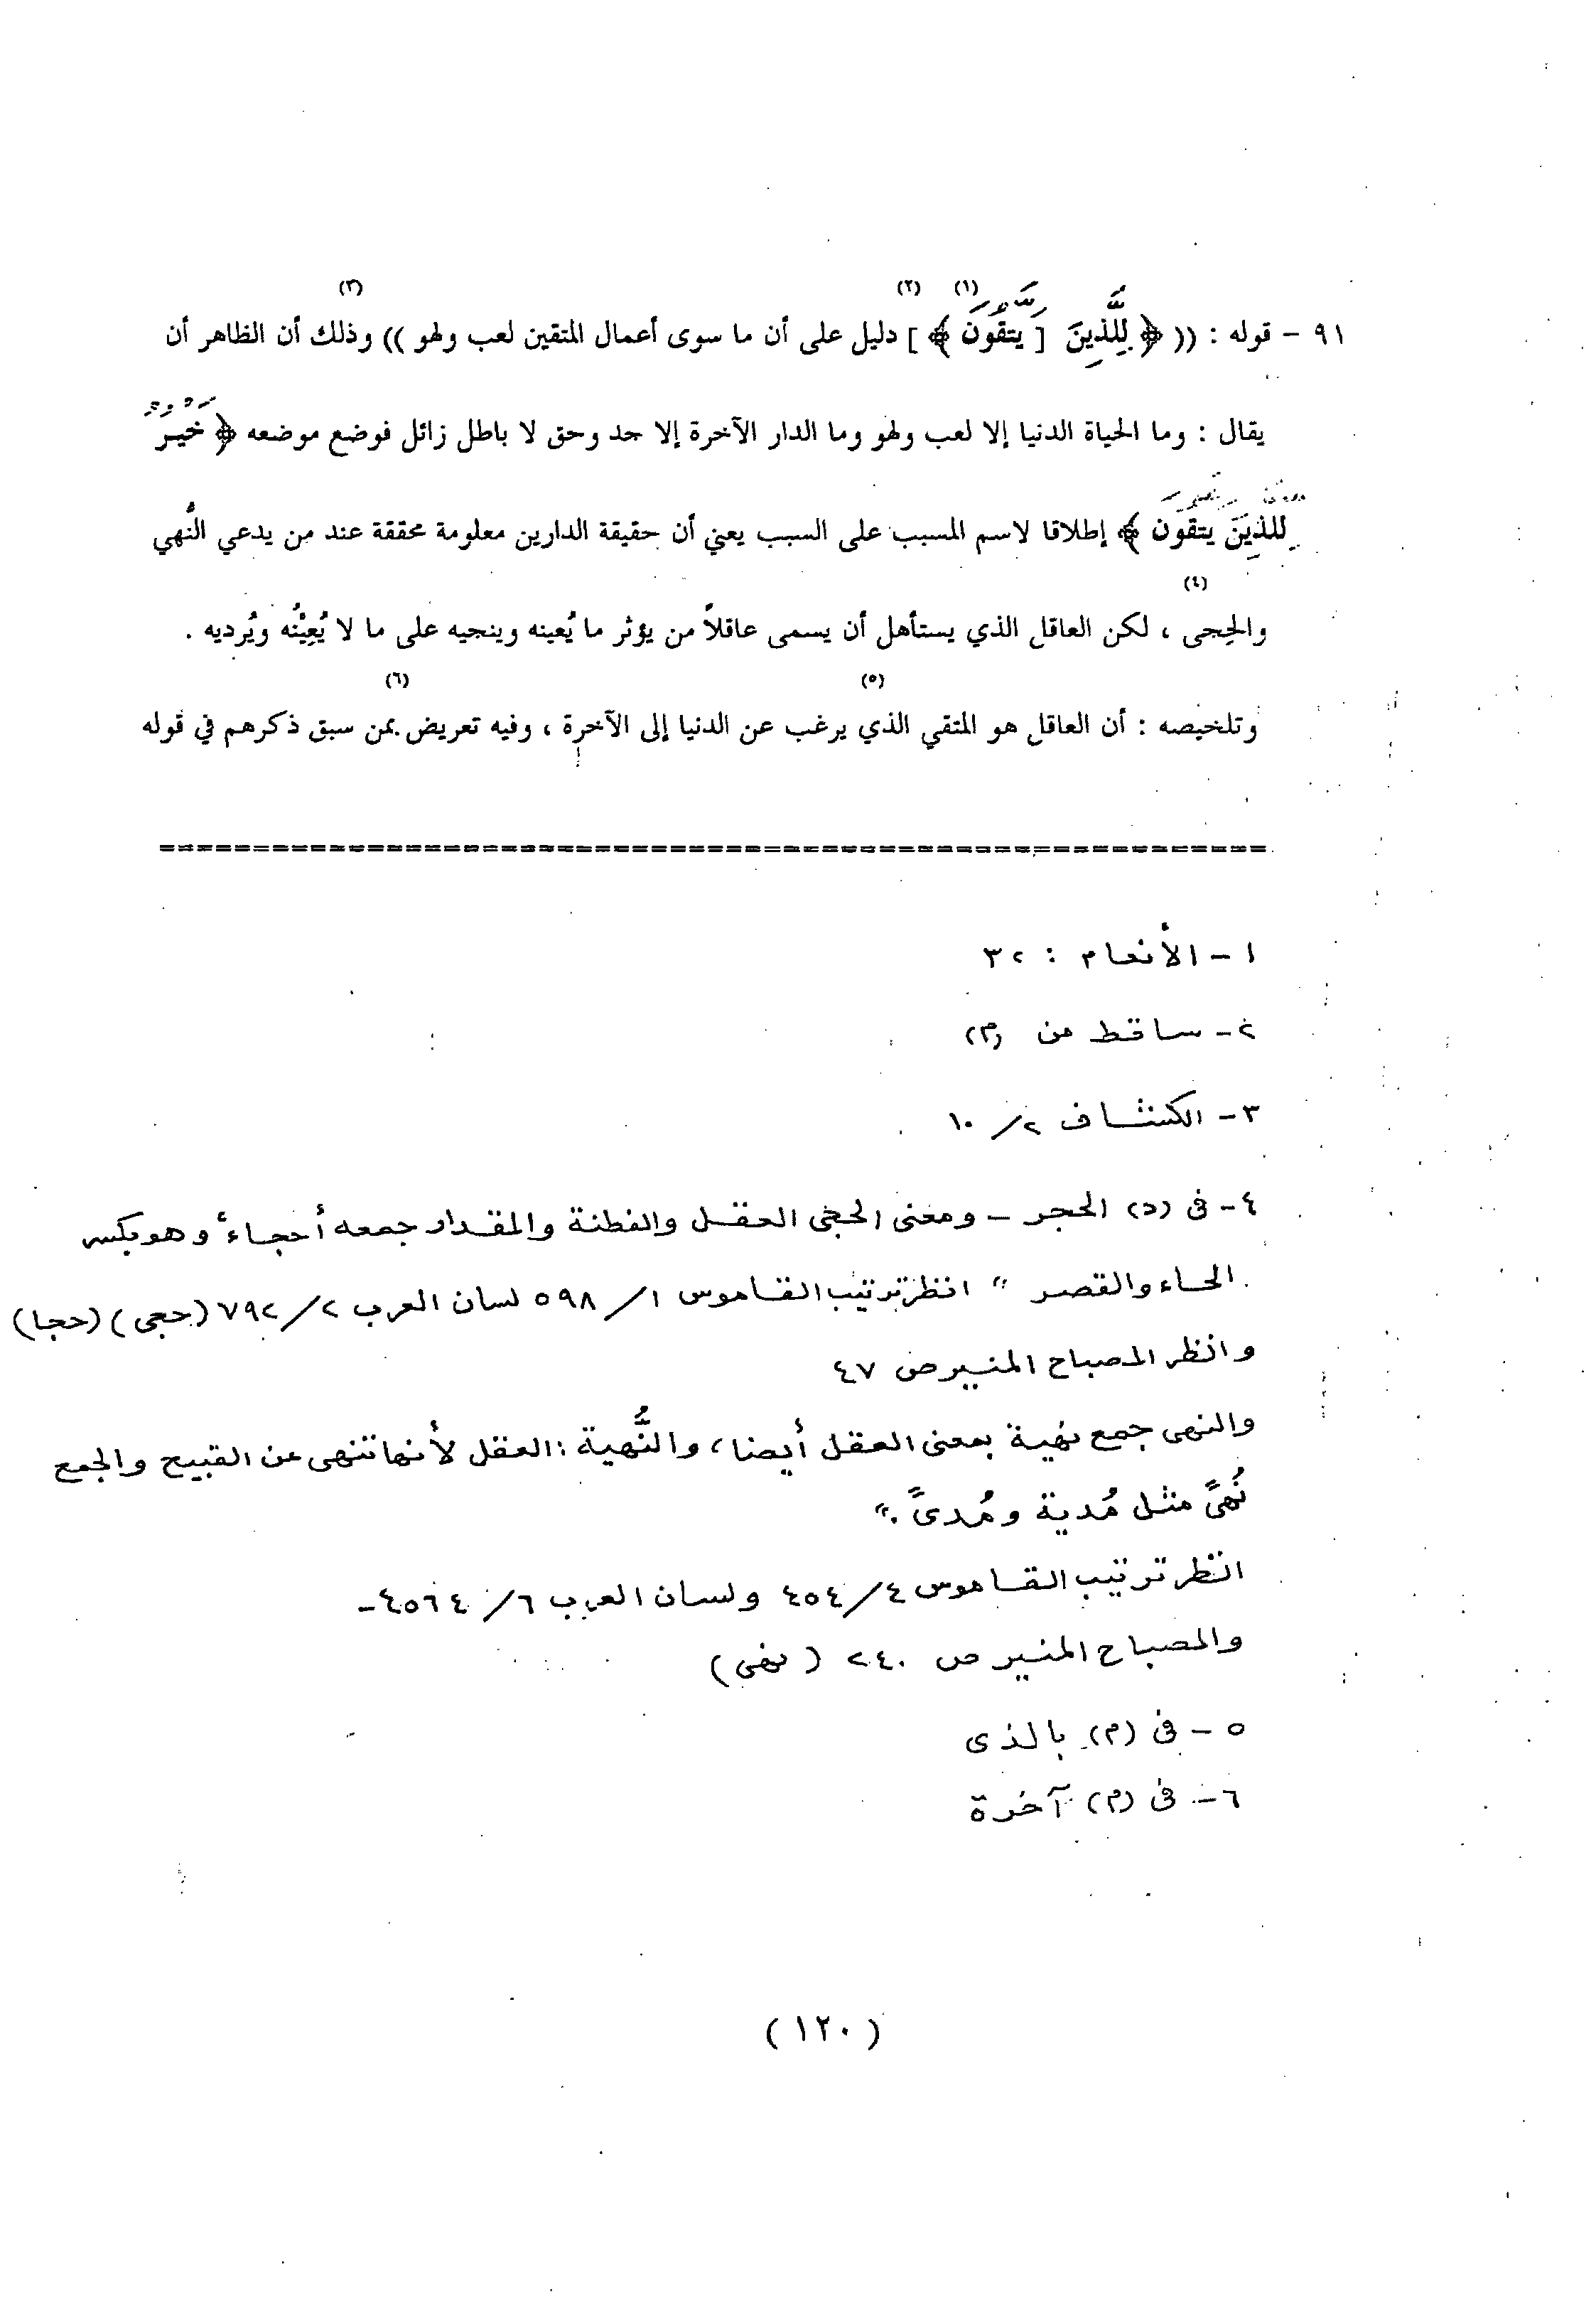 (١) (٢) (٣)
٩١ - قوله : (( ﴿ لِلَّذِينَ [ يَتَّقُونَ ﴾ ] دليل على أن ما سوى أعمال المتقين لعب ولهو )) وذلك أن الظاهر أن
يقال : وما الحياة الدنيا إلا لعب ولهو وما الدار الآخرة إلا جد وحق لا باطل زائل فوضع موضعه ﴿ خَيْرٌ
لِلَّذِينَ يَتَّقُونَ ﴾ إطلاقا لاسم المسبب على السبب يعني أن حقيقة الدارين معلومة محققة عند من يدعي النُّهي
(٤)
والحِجى ، لكن العاقل الذي يستأهل أن يسمى عاقلاً من يؤثر ما يُعينه وينجيه على ما لا يُعِيْنُه ويُرديه .
(٥) (٦)
وتلخيصه : أن العاقل هو المتقي الذي يرغب عن الدنيا إلى الآخرة ، وفيه تعريض بمن سبق ذكرهم في قوله
١ - الأنعام : ٣٢
٢ - ساقط من (م)
٣ - الكشاف ٢/١٠
٤ - فى (د) الحجر - ومعنى الحجى العقل والفطنة والمقدار جمعه أحجاء، وهو بكسر
الحاء والقصر " انظر ترتيب القاموس ١/٥٩٨ لسان العرب ٢/٧٩٢ (حجى) (حجا)
وانظر المصباح المنير ص ٤٧
والنهى جمع نهية بمعنى العقل أيضا، والنُّهية : العقل لأنها تنهى عن القبيح والجمع
نُهىً مثل مُدية ومُدىً . "
انظر ترتيب القاموس ٤/٤٥٤ ولسان العرب ٦/٤٥٦٤ -
والمصباح المنير ص ٢٤٠ (نهى)
٥ - فى (م) بالذى
٦ - فى (م) آخرة
(١٢٠)